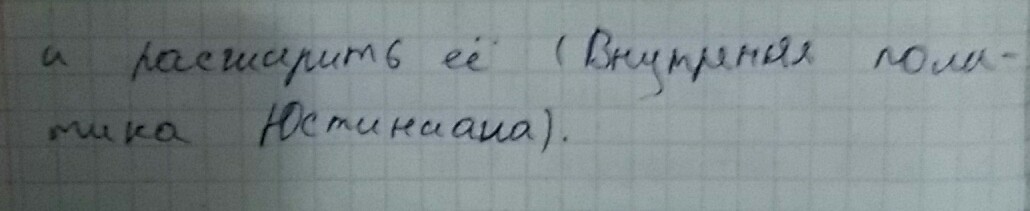 и расширить её (Внутреняя поли-
тика Юстиниана).